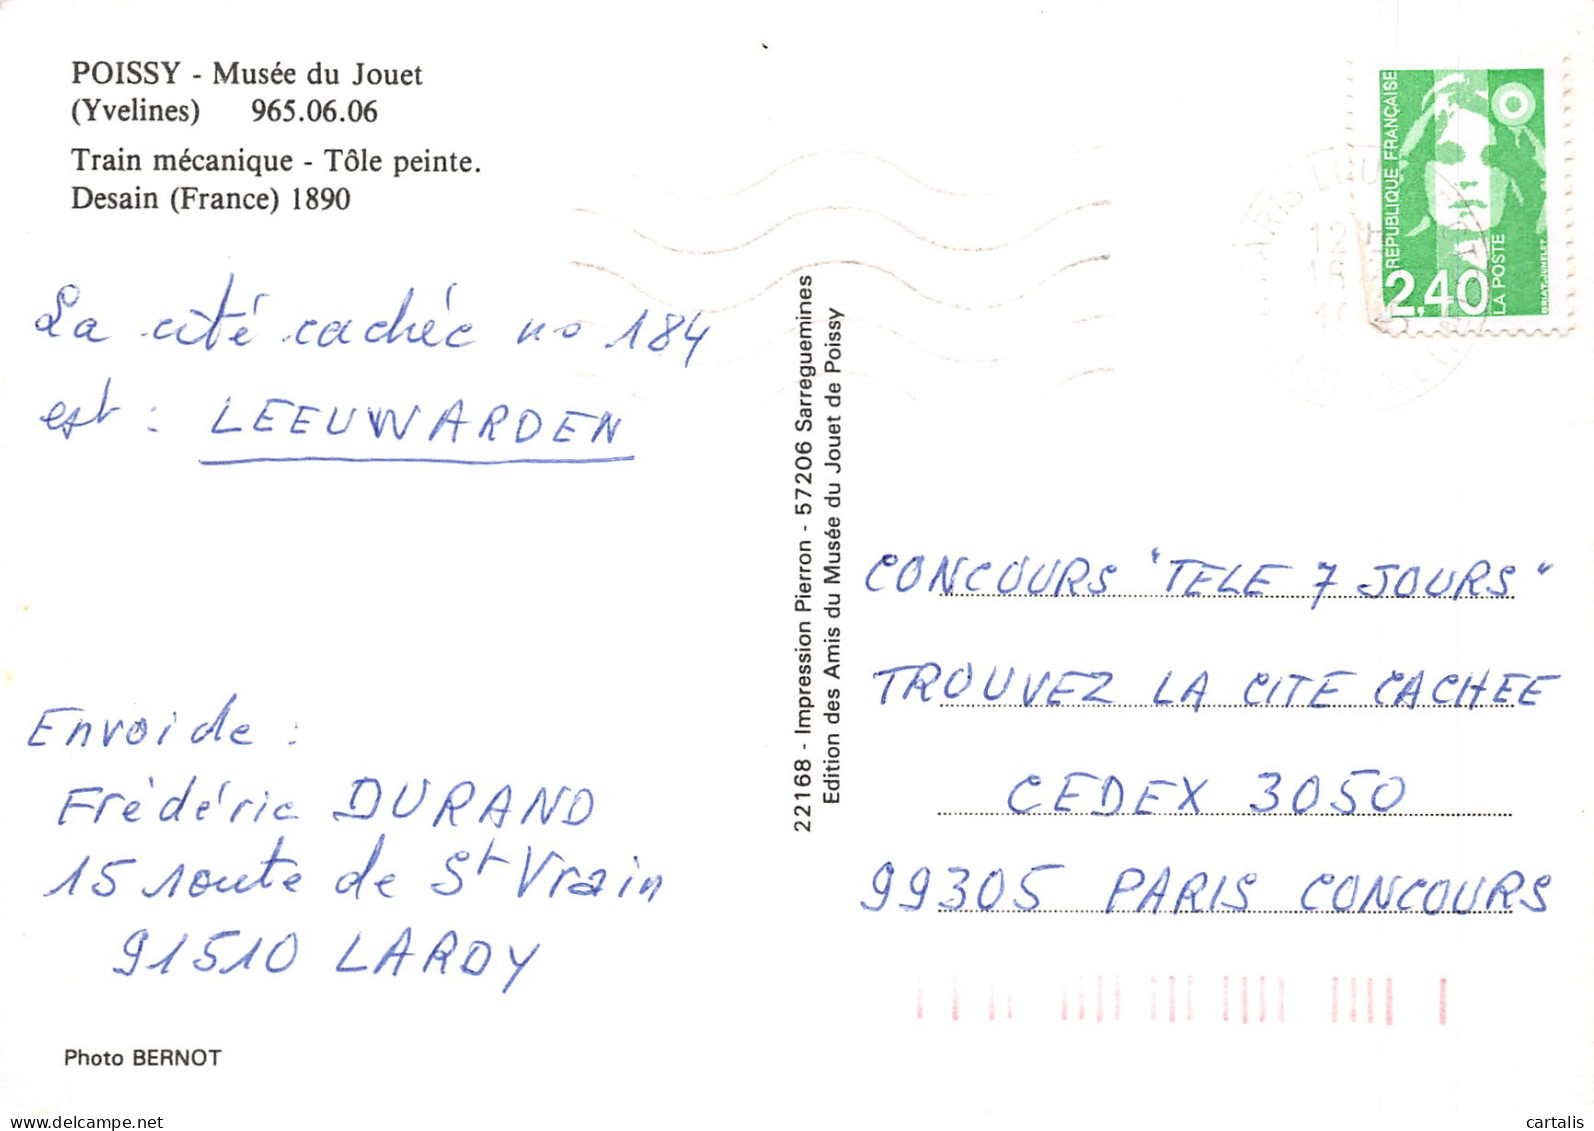 POISSY - Musée du Jouet
(Yvelines) 965.06.06
Train mécanique - Tôle peinte.
Desain (France) 1890
La cité cachée no 184
est : LEEUWARDEN
Envoi de :
Frédéric DURAND
15 route de St Vrain
91510 LARDY
Photo BERNOT
22168 - Impression Pierron - 57206 Sarreguemines
Edition des Amis du Musée du Jouet de Poissy
RÉPUBLIQUE FRANÇAISE
2,40
LA POSTE
BRIAT-JUMELET
PARIS LOU
12 H
CONCOURS "TELE 7 JOURS"
TROUVEZ LA CITE CACHEE
CEDEX 3050
99305 PARIS CONCOURS
cartalis